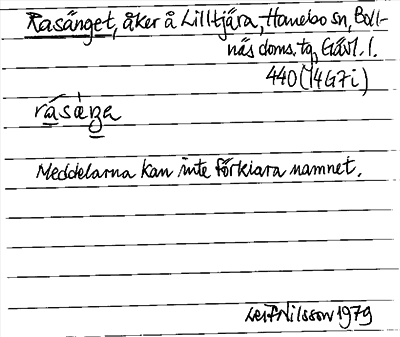 Rasänget, åker å Lilltjära, Hanebo sn, Boll-
näs doms.tg, Gävl. l.
440 (14G7i)
rásàŋa
Meddelarna kan inte förklara namnet.
Leif Nilsson 1979